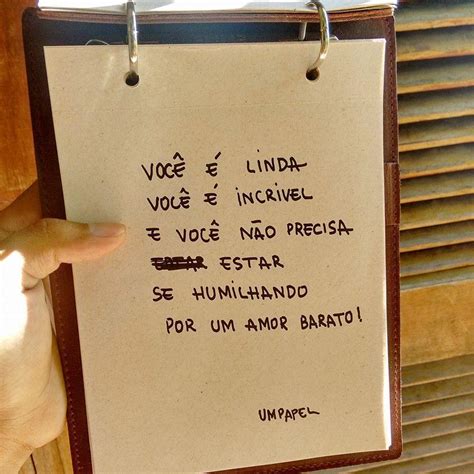 VOCÊ É LINDA
VOCÊ É INCRIVEL
E VOCÊ NÃO PRECISA
ESTAR
SE HUMILHANDO
POR UM AMOR BARATO!
UMPAPEL